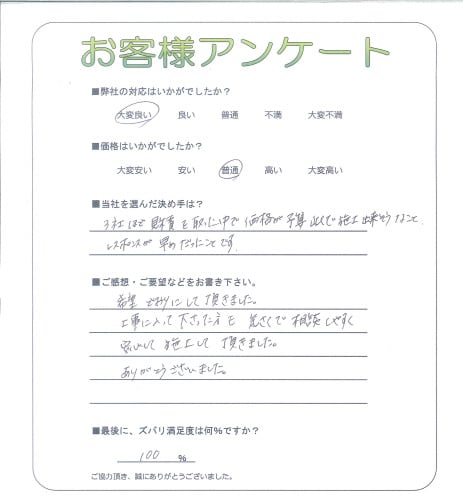 お客様アンケート
■弊社の対応はいかがでしたか？
大変良い 良い 普通 不満 大変不満
■価格はいかがでしたか？
大変安い 安い 普通 高い 大変高い
■当社を選んだ決め手は？
3社ほど見積を取った中で価格が予算以下で施工出来そうなこと
レスポンスが早かったことです。
■ご感想・ご要望などをお書き下さい。
希望どおりにして頂きました。
工事に入って下さった方も気さくで相談しやすく
安心して施工して頂きました。
ありがとうございました。
■最後に、ズバリ満足度は何%ですか？
100 %
ご協力頂き、誠にありがとうございました。